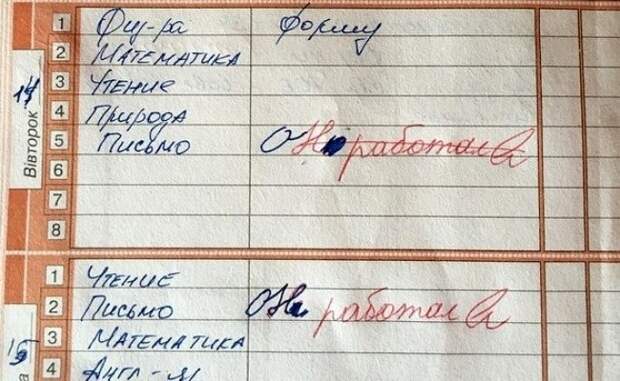 1 Физ-ра Форму
2 Математика
3 Чтение
4 Природа
5 Письмо Он работала
6
7
8
14
Вівторок
1 Чтение
2 Письмо Он работала
3 Математика
4 Англ-
15